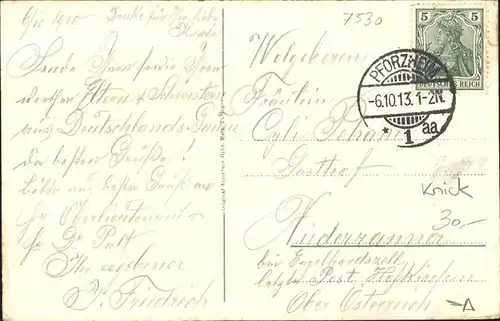 6/10 1910 Danke für Ihre liebe
Karte
Sende Ihnen sowie Ihren
werthen Eltern & Schwestern
aus Deutschlands Gauen
die besten Grüße!
Bitte auch besten Gruß an
Hr Oberlieutenant &
Hr Dr Pult
Ihr ergebener
F. Friedrich
7530
5
DEUTSCHES REICH
PFORZHEIM
-6.10.13.1-2N.
* 1 aa
Wolgeborene
Fräulein
Gasthof
Knick
30,-
Niederranna
bei Engelhardszell
letzte Post Hofkirchen
Ober Österreich